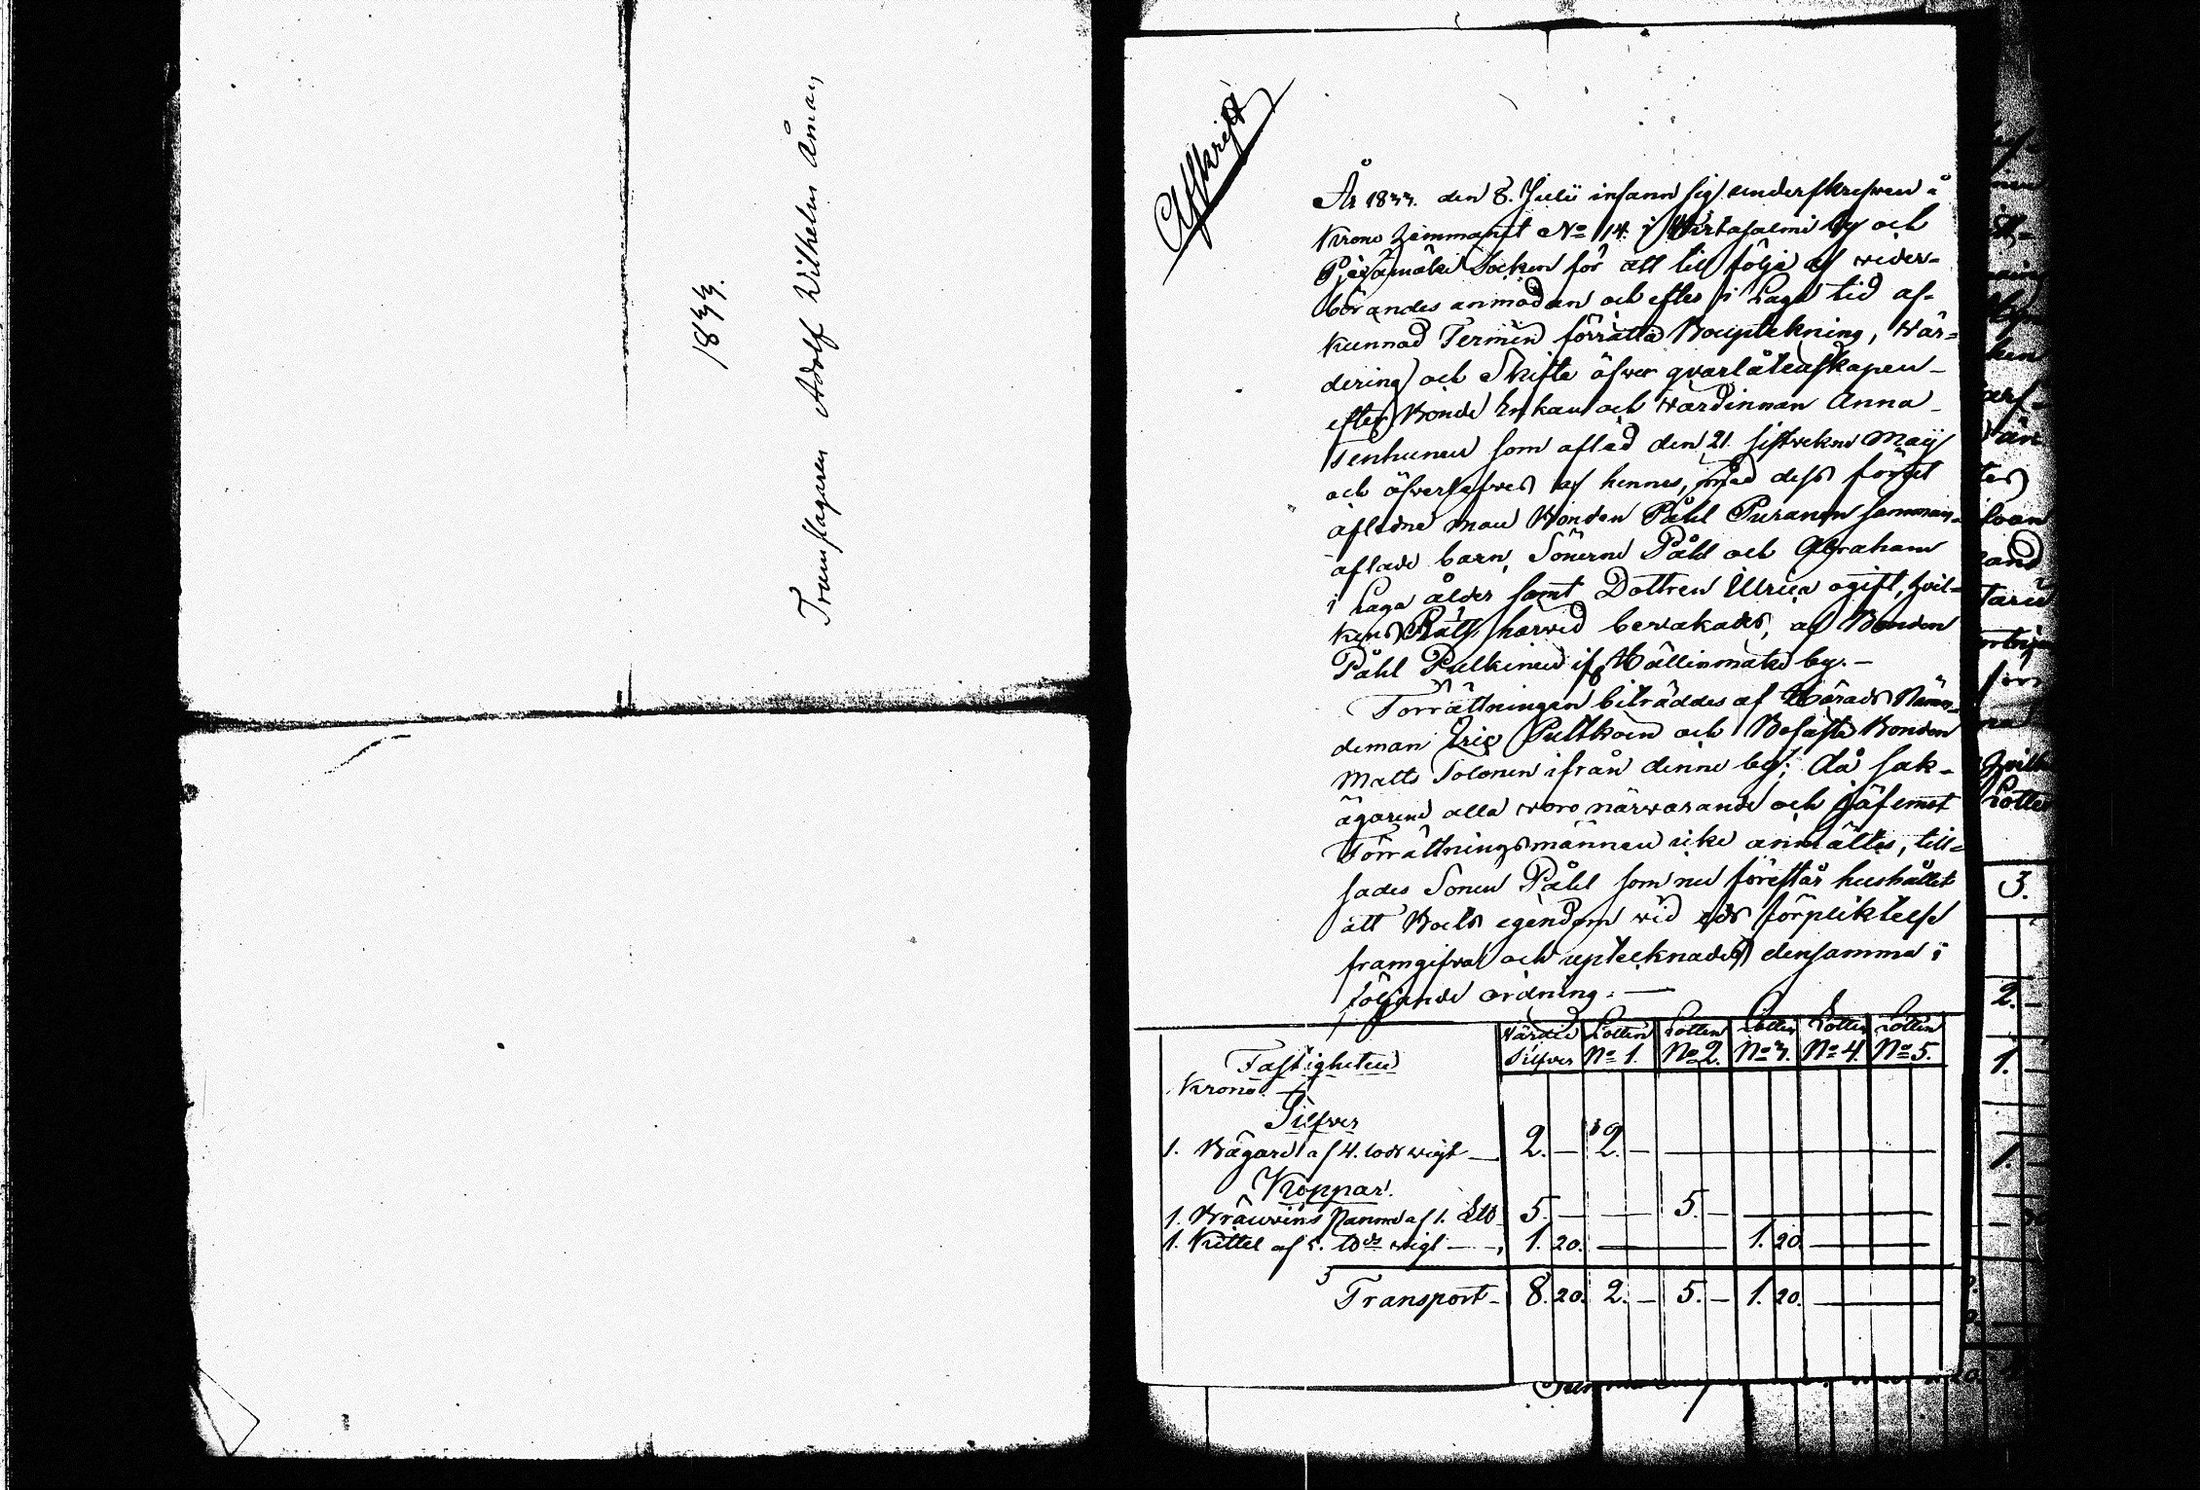 1833.
Trumslagaren Adolf Wilhelm Åman,
Afskrift
År 1833. den 8. Julii infann sig underskrefwen å
Krono Hemmanet No 14. i Wirtasalmi by och
Pieksämäki Socken för att till följe af weder-
börandes anmodan och efter i Laga tid af-
kunnad Termin förrätta Bouptekning, Wär-
dering och Skifte öfver qvarlåtenskapen
efter Bonde Enkan och Wärdinnan Anna
Tenhunen som afled den 21. sistvekne Maij
och öfverlefves af hennes, med dess förut
aflidne man Bonden Påhl Puranen samman-
aflade barn, Sönerne Påhl och Abraham
i Laga ålder samt Dottren Ulrica ogift, hvil-
kens Rätt härvid bevakades, af Bonden
Påhl Pulkinen if. Hällinmäki by. -
Förrättningen biträddes af Härads Nämn-
deman Eric Pulkinen och Besutne Bonden
Matts Tolonen ifrån denne by; då sak-
ägarene alla woro närwarande och jäf emot
Förrättningsmännen icke anmältes, till-
sades Sonen Påhl som nu förestår hushållet
att Boets egendom wid eds förpliktelse
framgifva och uptecknades densamma i
följande ordning. -
Värdet Silfver Lotten No 1. Lotten No 2. Lotten No 3. Lotten No 4. Lotten No 5.
Fastigheten
Krono
Silfver
1. Bägare af 4. lods wigt 2. - 2. -
Koppar.
1. Bränvins Panna af 1. 5. - 5. -
1. Kittel af 5. wigt 1. 20. 1. 20.
Transport - 8. 20. 2. - 5. - 1. 20.